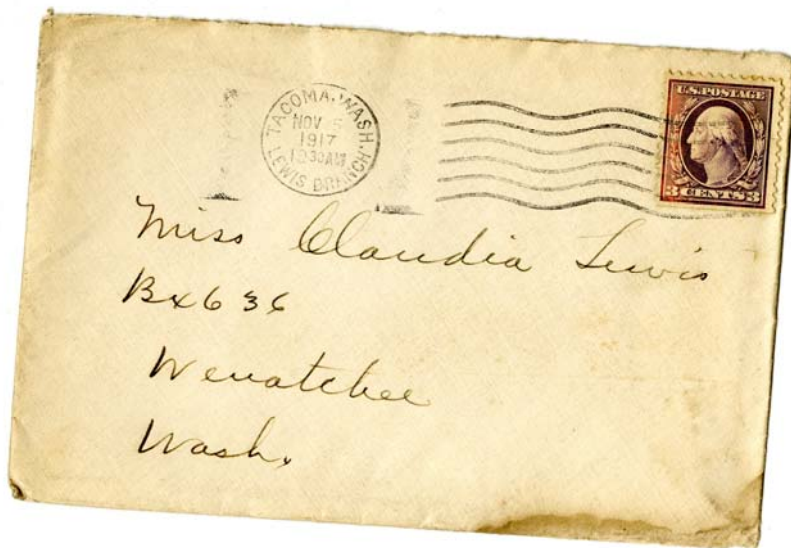 TACOMA, WASH.
NOV 5
1917
LEWIS BRANCH
U.S. POSTAGE
3 CENTS 3
Miss Claudia Lewis
Bx 636
Wenatchee
Wash.